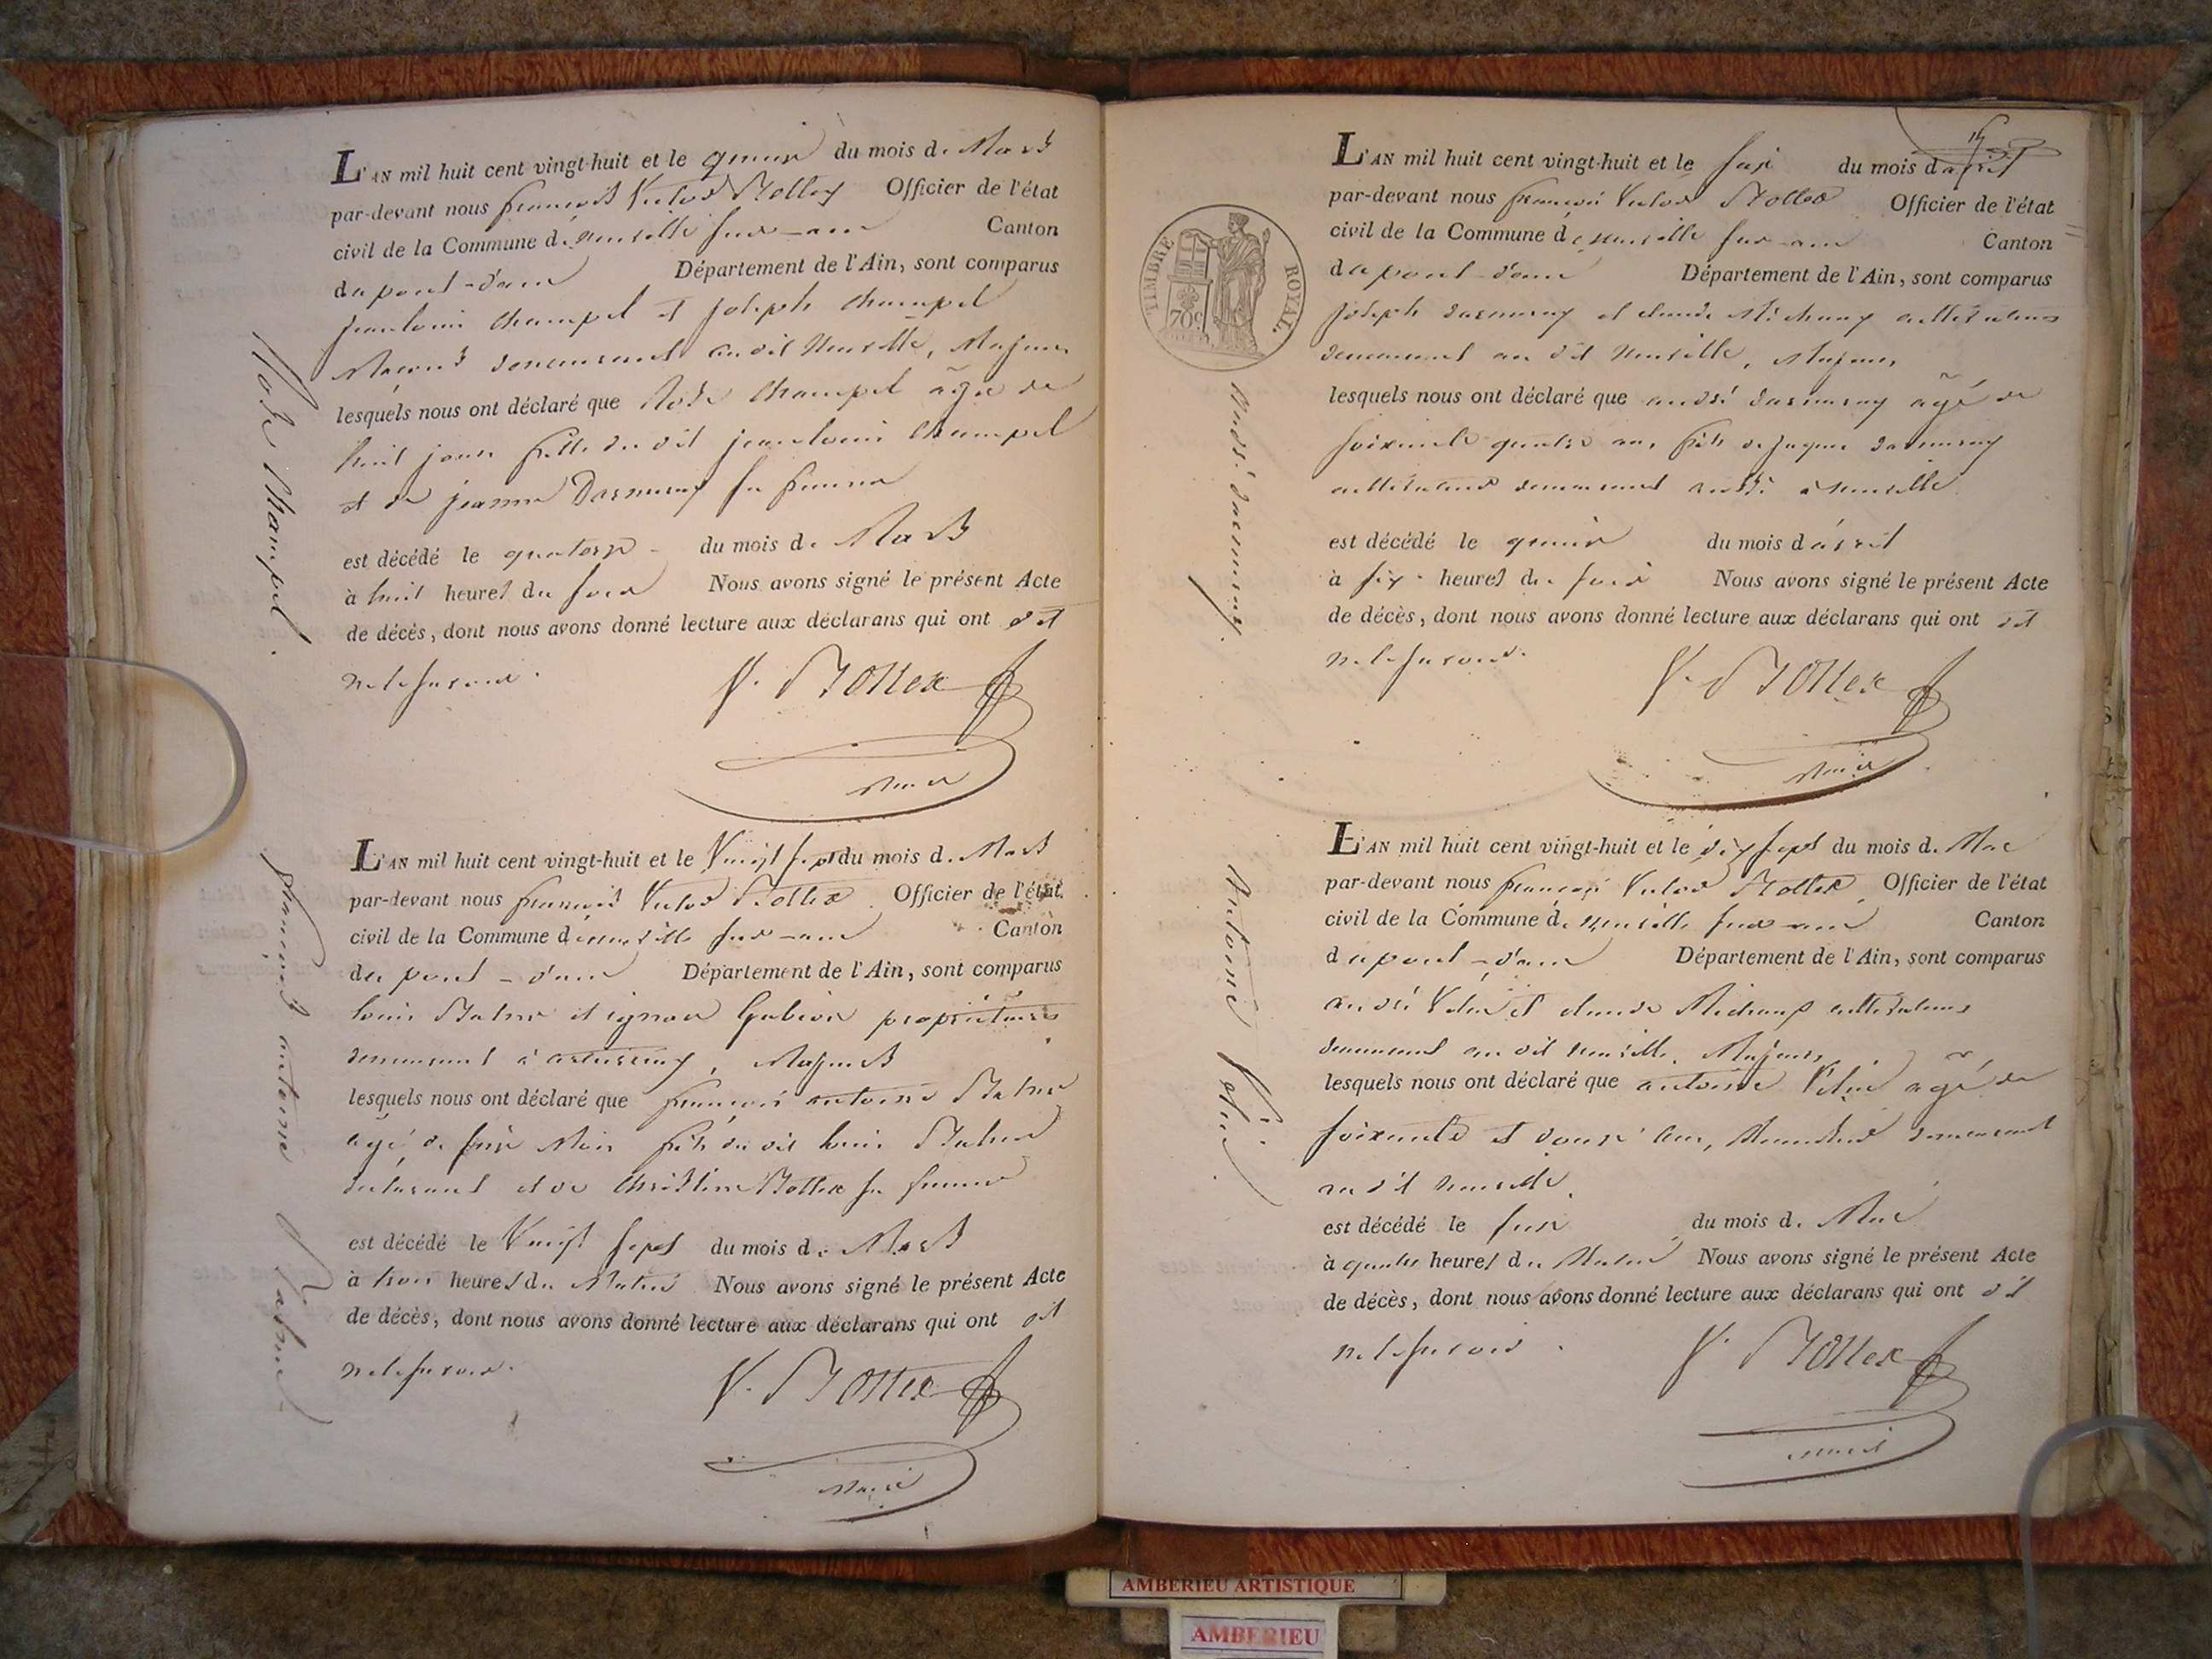 L'AN mil huit cent vingt-huit et le quinze du mois de Mars
par-devant nous françois Victor Bottex Officier de l'état
civil de la Commune de neuville sur-ain Canton
du pont-d'ain Département de l'Ain, sont comparus
jeanlouis Champel et joseph Champel
demeurant au dit Neuville, Majeurs
lesquels nous ont déclaré que Rose Champel âgée de
huit jours fille du dit jeanlouis Champel
et de jeanne Darmeray sa femme
est décédé le quatorze du mois de Mars
à huit heures du soir Nous avons signé le présent Acte
de décès, dont nous avons donné lecture aux déclarans qui ont dit
ne le savoir.
V. Bottex
Maire
Rose Champel.
L'AN mil huit cent vingt-huit et le Vingt sept du mois de Mars
par-devant nous françois Victor Bottex Officier de l'état
civil de la Commune de neuville sur-ain Canton
du pont-d'ain Département de l'Ain, sont comparus
louis et propriétaires
demeurant à , Majeurs
lesquels nous ont déclaré que françois antoine
âgé de Mois fils du dit louis
et de Christine Bottex sa femme
est décédé le Vingt sept du mois de Mars
à trois heures du Matin Nous avons signé le présent Acte
de décès, dont nous avons donné lecture aux déclarans qui ont dit
ne le savoir.
V. Bottex
Maire
françois antoine
TIMBRE ROYAL.
70c
L'AN mil huit cent vingt-huit et le seize du mois d'avril
par-devant nous françois Victor Bottex Officier de l'état
civil de la Commune de neuville sur-ain Canton
du pont-d'ain Département de l'Ain, sont comparus
joseph darmeray et claude Michaux cultivateurs
demeurant au dit Neuville, Majeurs
lesquels nous ont déclaré que andré darmeray âgé de
soixante quatre ans, fils de jaques darmeray
cultivateur demeurant à neuville
est décédé le quinze du mois d'avril
à six heures du soir Nous avons signé le présent Acte
de décès, dont nous avons donné lecture aux déclarans qui ont dit
ne le savoir.
V. Bottex
Maire
André darmeray.
L'AN mil huit cent vingt-huit et le dix sept du mois de Mai
par-devant nous françois Victor Bottex Officier de l'état
civil de la Commune de neuville sur-ain Canton
du pont-d'ain Département de l'Ain, sont comparus
andré Velin et claude Michaux cultivateurs
demeurant au dit neuville, Majeurs
lesquels nous ont déclaré que antoine Velin âgé de
soixante et douze ans, demeurant
au dit neuville
est décédé le seize du mois de Mai
à quatre heures du Matin Nous avons signé le présent Acte
de décès, dont nous avons donné lecture aux déclarans qui ont dit
ne le savoir.
V. Bottex
Maire
Antoine Velin
AMBERIEU ARTISTIQUE
AMBERIEU